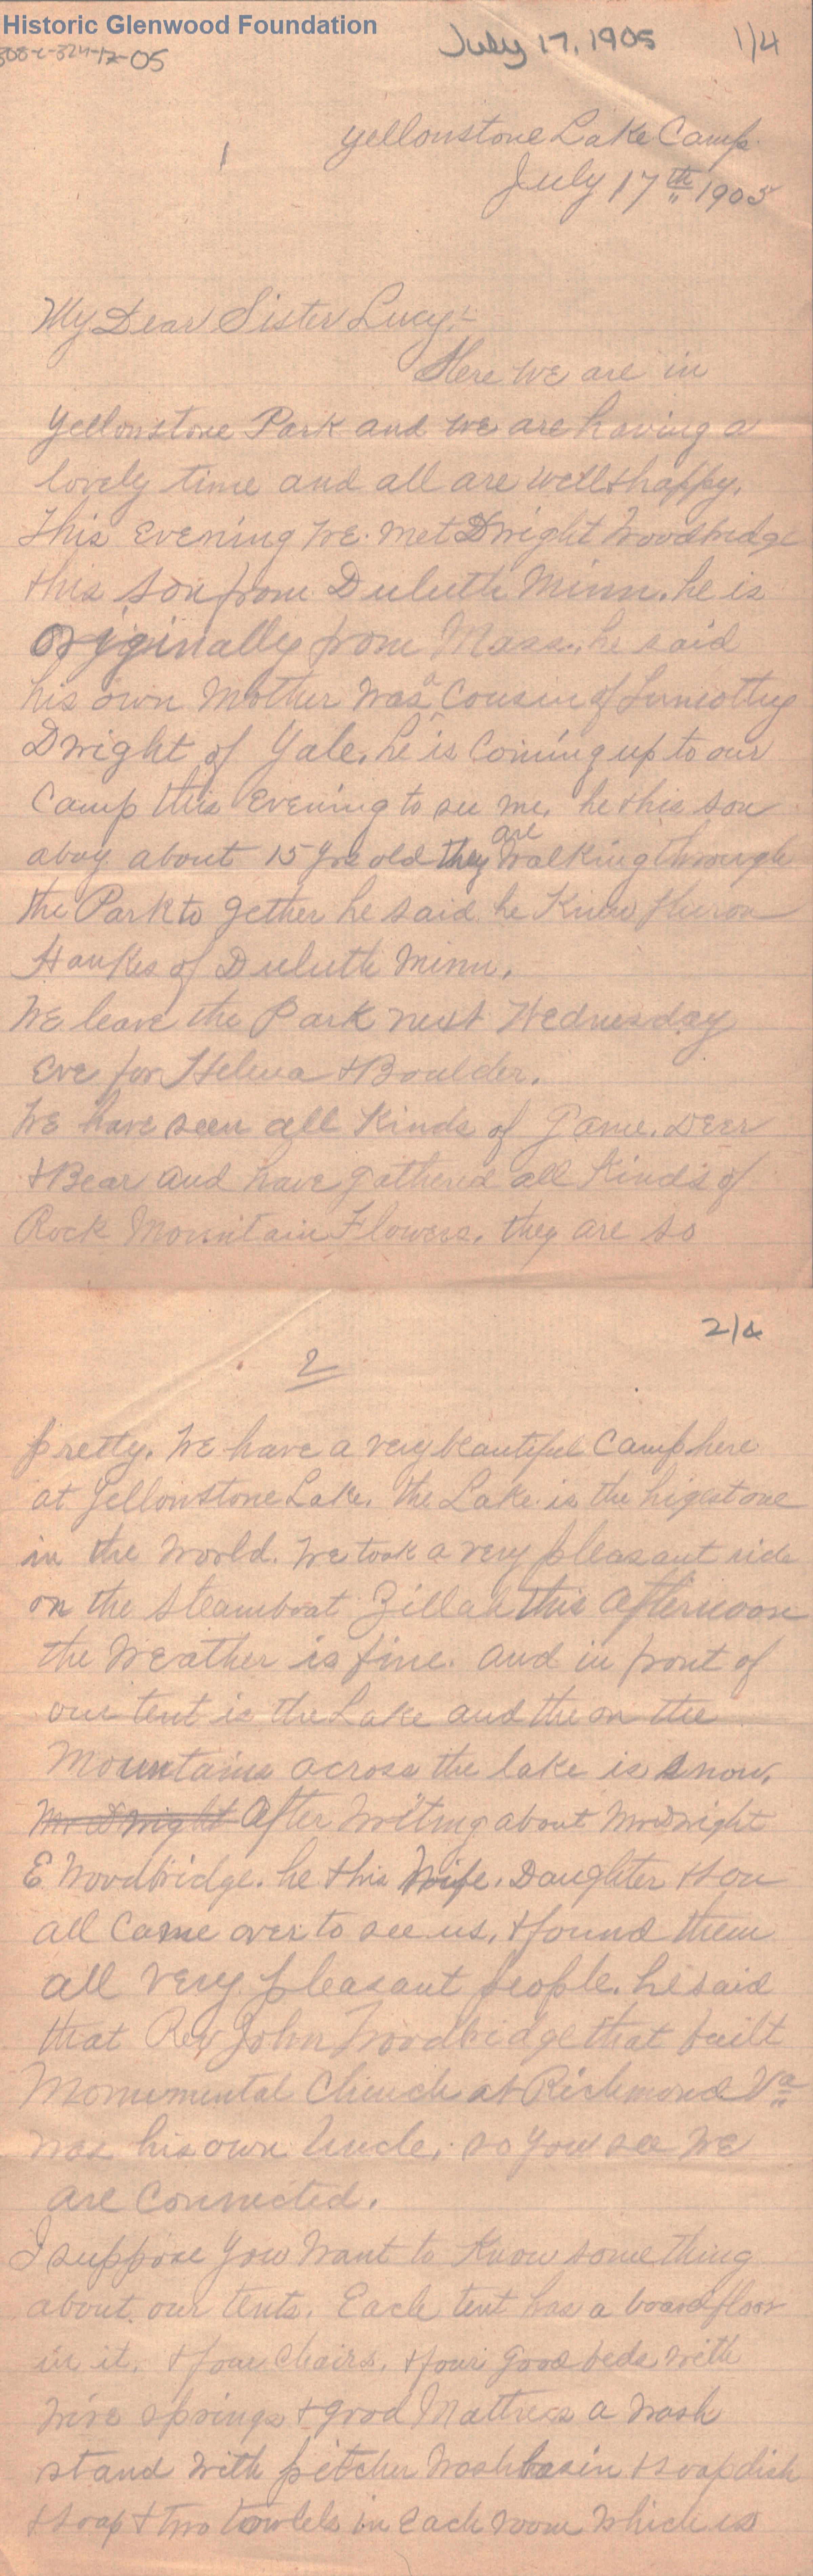 Historic Glenwood Foundation
308-c-324-12-05
July 17, 1905
1/4
1
Yellowstone Lake Camp.
July 17th 1905
My Dear Sister Lucy:-
Here we are in
Yellowstone Park and we are having a
lovely time and all are well & happy.
This Evening we met Dwight Woodbridge
& his son from Duluth Minn. he is
originally from Mass. he said
his own Mother was a Cousin of Timothy
Dwight of Yale. he is Coming up to our
Camp this Evening to see me. he & his son
a boy about 15 yrs old they are walking through
the Park to gether he said he Knew Huron
Hawkes of Duluth Minn.
We leave the Park next Wednesday
Eve for Helena & Boulder.
We have seen all Kinds of Game. Deer
& Bear and have gathered all Kinds of
Rock Mountain Flowers. they are so
2/4
2
pretty. We have a very beautiful Camp here
at Yellowstone Lake. the Lake is the higest one
in the World. We took a very pleasant ride
on the steamboat Zillah this afternoon
the Weather is fine. and in front of
our tent is the Lake and the on the
Mountains across the lake is snow.
Mr Dwight After Writing about Mr Dwight
E Woodbridge. he & his Wife. Daughter & son
all Came over to see us, & found them
all very pleasant people. he said
that Rev John Woodbridge that built
Monumental Church at Richmond Va
was his own Uncle, so you see We
are Connected.
I suppose you Want to Know something
about our tents. Each tent has a board floor
in it, & four Chairs, & four good beds with
Wire springs & good Mattress a Wash
stand With pitcher Wash basin & soap dish
& soap & two towlels in Each room Which is